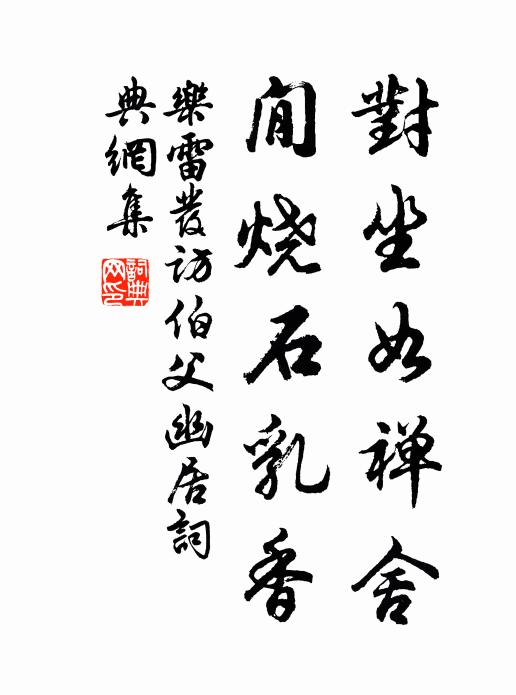 對坐如禅舍
閒烧石乳香
樂雷發访伯父幽居詞
典網集
詞典
网印